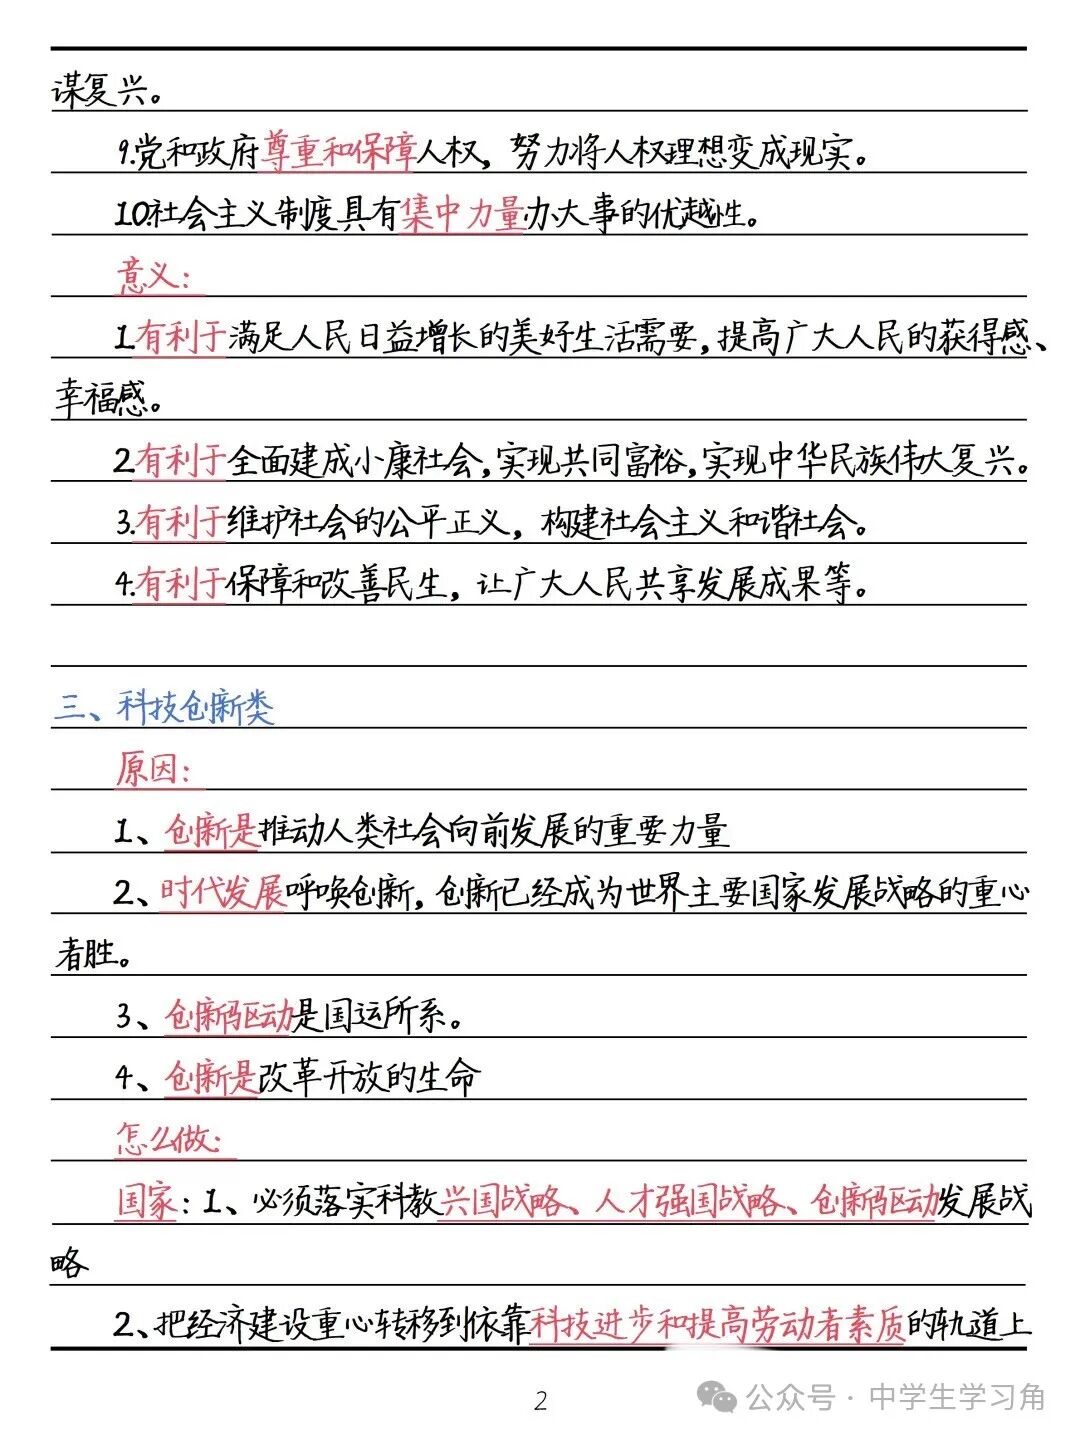 谋复兴。
9.党和政府尊重和保障人权，努力将人权理想变成现实。
10.社会主义制度具有集中力量办大事的优越性。
意义：
1.有利于满足人民日益增长的美好生活需要，提高广大人民的获得感、
幸福感。
2.有利于全面建成小康社会，实现共同富裕，实现中华民族伟大复兴。
3.有利于维护社会的公平正义，构建社会主义和谐社会。
4.有利于保障和改善民生，让广大人民共享发展成果等。
三、科技创新类
原因：
1、创新是推动人类社会向前发展的重要力量
2、时代发展呼唤创新，创新已经成为世界主要国家发展战略的重心
者胜。
3、创新驱动是国运所系。
4、创新是改革开放的生命
怎么做：
国家：1、必须落实科教兴国战略、人才强国战略、创新驱动发展战
略
2、把经济建设重心转移到依靠科技进步和提高劳动者素质的轨道上
2
公众号·中学生学习角